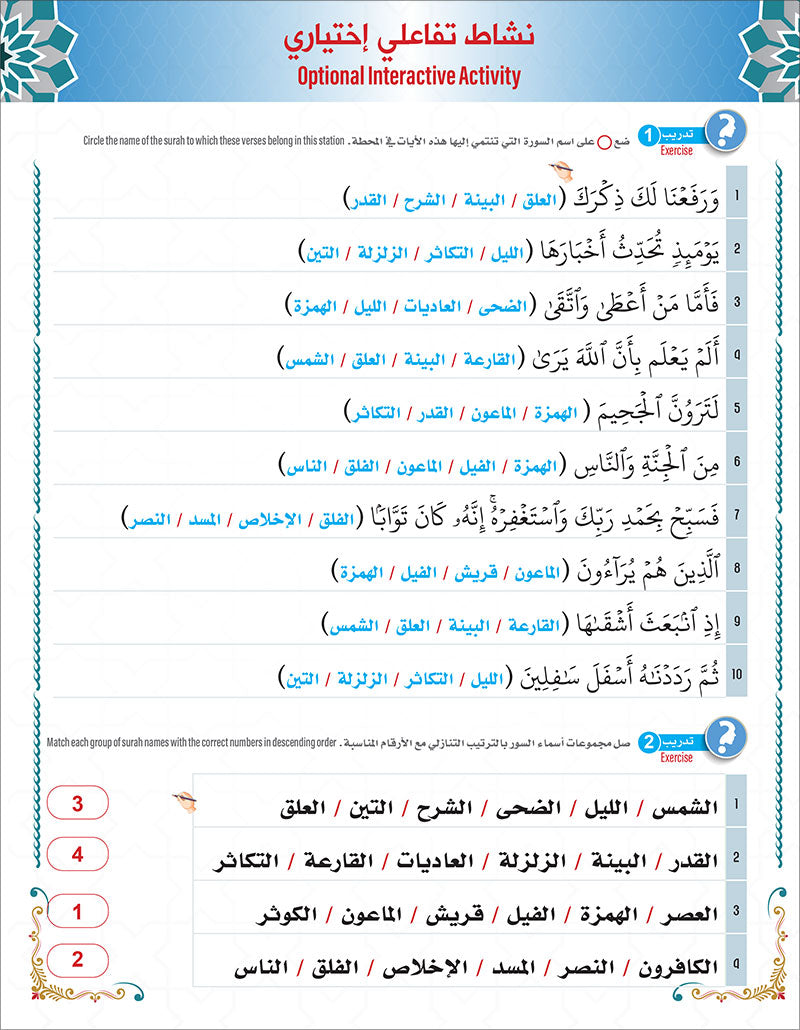 نشاط تفاعلي إختياري
Optional Interactive Activity
تدريب 1 ضع على اسم السورة التي تنتمي إليها هذه الآيات في المحطة . Circle the name of the surah to which these verses belong in this station
Exercise
1 وَرَفَعْنَا لَكَ ذِكْرَكَ (العلق / البينة / الشرح / القدر)
2 يَوْمَئِذٍ تُحَدِّثُ أَخْبَارَهَا (الليل / التكاثر / الزلزلة / التين)
3 فَأَمَّا مَنْ أَعْطَىٰ وَٱتَّقَىٰ (الضحى / العاديات / الليل / الهمزة)
٩ أَلَمْ يَعْلَم بِأَنَّ ٱللَّهَ يَرَىٰ (القارعة / البينة / العلق / الشمس)
5 لَتَرَوُنَّ ٱلْجَحِيمَ ( الهمزة / الماعون / القدر / التكاثر)
6 مِنَ ٱلْجِنَّةِ وَٱلنَّاسِ (الهمزة / الفيل / الماعون / الفلق / الناس)
7 فَسَبِّحْ بِحَمْدِ رَبِّكَ وَٱسْتَغْفِرْهُ ۚ إِنَّهُۥ كَانَ تَوَّابًۢا (الفلق / الإخلاص / المسد / النصر)
8 ٱلَّذِينَ هُمْ يُرَآءُونَ (الماعون / قريش / الفيل / الهمزة)
9 إِذِ ٱنۢبَعَثَ أَشْقَىٰهَا (القارعة / البينة / العلق / الشمس)
10 ثُمَّ رَدَدْنَٰهُ أَسْفَلَ سَٰفِلِينَ (الليل / التكاثر / الزلزلة / التين)
تدريب 2 صل مجموعات أسماء السور بالترتيب التنازلي مع الأرقام المناسبة . Match each group of surah names with the correct numbers in descending order
Exercise
1 الشمس / الليل / الضحى / الشرح / التين / العلق 3
2 القدر / البينة / الزلزلة / العاديات / القارعة / التكاثر 4
3 العصر / الهمزة / الفيل / قريش / الماعون / الكوثر 1
٩ الكافرون / النصر / المسد / الإخلاص / الفلق / الناس 2